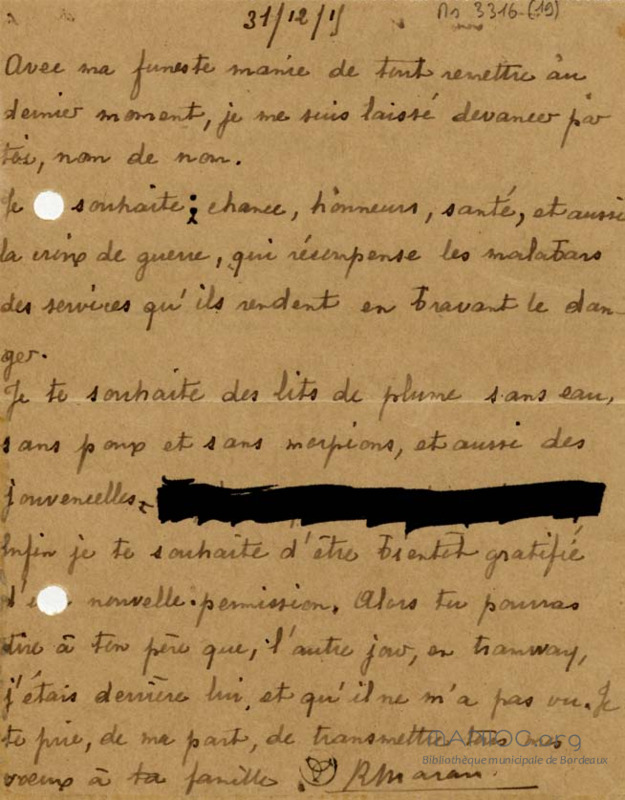 31/12/15
Ms 3316-(19)
Avec ma funeste manie de tout remettre au
dernier moment, je me suis laissé devancer par
toi, nom de nom.
Je souhaite : chance, honneurs, santé, et aussi
la croix de guerre, qui récompense les malabars
des services qu'ils rendent en bravant le dan-
ger.
Je te souhaite des lits de plume sans eau,
sans poux et sans morpions, et aussi des
jouvencelles.
Enfin je te souhaite d'être bientôt gratifié
nouvelle permission. Alors tu pourras
dire à ton père que, l'autre jour, en tramway,
j'étais derrière lui, et qu'il ne m'a pas vu. Je
te prie, de ma part, de transmettre mes
vœux à ta famille. RMaran
.org
Bibliothèque municipale de Bordeaux